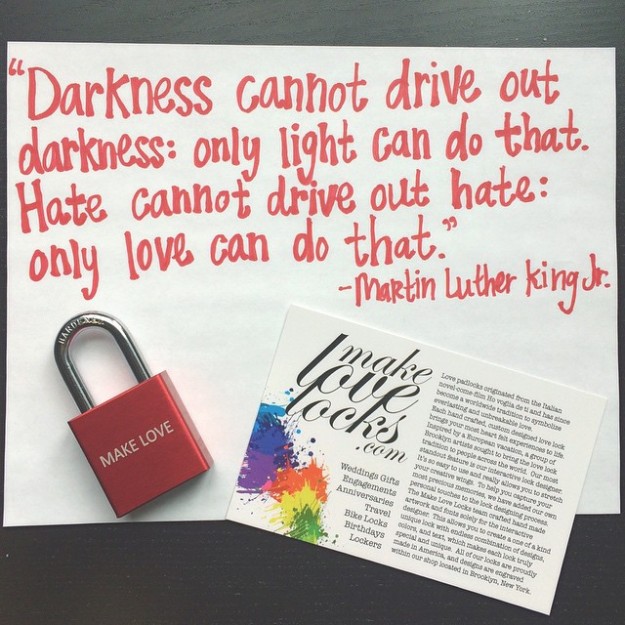 “Darkness cannot drive out
darkness: only light can do that.
Hate cannot drive out hate:
only love can do that.”
-Martin Luther King Jr.
HARDENED
MAKE LOVE
make
love
locks
.com
Weddings Gifts
Engagements
Anniversaries
Travel
Bike Locks
Birthdays
Lockers
Love padlocks originated from the Italian
novel-come-film Ho voglia de ti and has since
become a worldwide tradition to symbolize
everlasting and unbreakable love.
Each hand crafted, custom designed love lock
brings your most heart felt experiences to life.
Inspired by a European vacation, a group of
Brooklyn artists sought to bring the love lock
tradition to people across the world. Our most
standout feature is our interactive lock designer.
It's so easy to use and really allows you to stretch
your creative wings. To help you capture your
most precious memories, we have added our own
personal touches to the lock designing process.
The Make Love Locks team crafted hand made
artwork and fonts solely for the interactive
designer. This allows you to create a one of a kind
unique lock with endless combination of designs,
colors, and text, which makes each lock truly
special and unique. All of our locks are proudly
made in America, and designs are engraved
within our shop located in Brooklyn, New York.